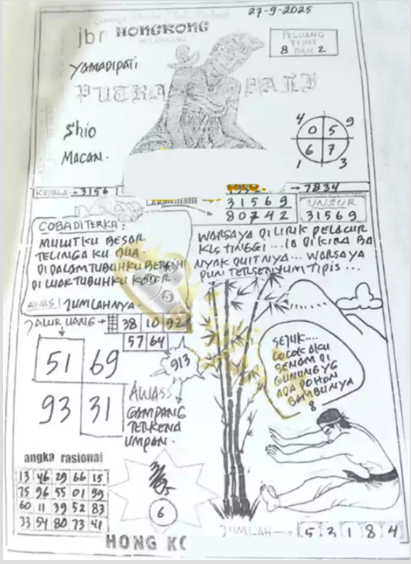 27-9-2025
jbr HONGKONG
PELUANG
TUNE
8 DAN 2
Yamadipati
PUTRA BALI
Shio
Macan.
4 9
0 5
6 7
1 3
KEPALA - 3156
→ 7834
31569
80742
UNSUR
31569
COBA DITERKA:
MULUTKU BESAR
TELINGA KU DUA
DI DALAM TUBUHKU
DI LUAR TUBUHKU KOTOR
AWAS! JUMLAHNYA
5
WARSAYA DI LIRIK PELACUR
KLS TINGGI... IA DI KIRA BA
NYAK DUITNYA... WARSAYA
PUN TERSENYUM TIPIS...
JALUR UANG →
38 10 92
57 64
913
51 69
93 31
AWAS:
GAMPANG
TERKENA
UMPAN.
SEJUK...
COCOK AKU
SENAM DI
GUNUNG YG
ADA POHON
BAMBUNYA
8
angka rasional
13 46 29 66 15
75 96 55 01 99
60 11 39 52 83
33 54 80 73 41
6
JUMLAH → 5 2 1 8 4
HONG KO